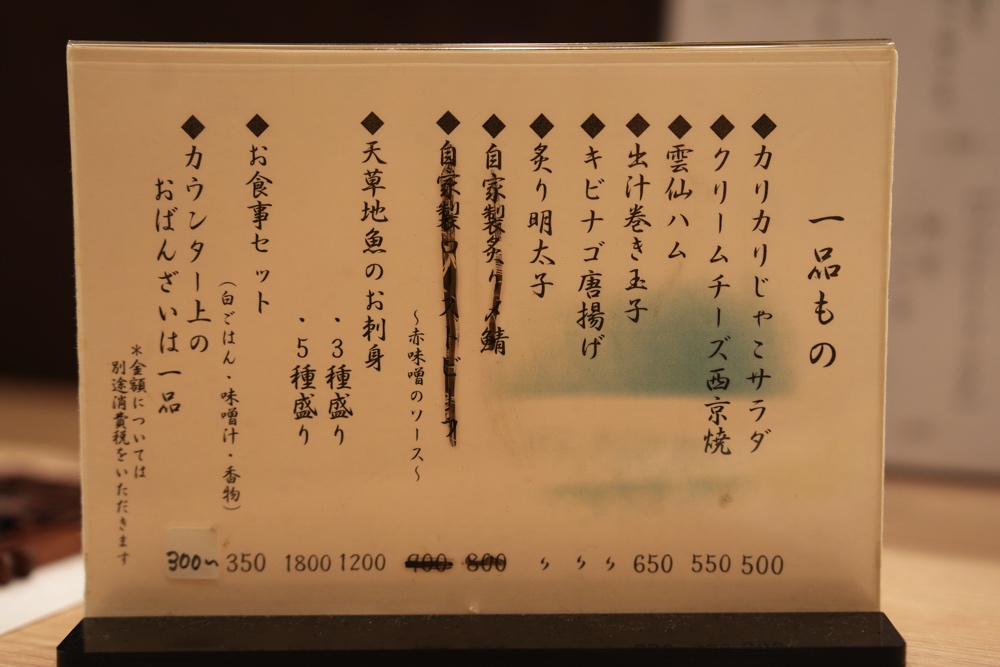 一品もの
◆カリカリじゃこサラダ 500
◆クリームチーズ西京焼 550
◆雲仙ハム 650
◆出汁巻き玉子 〃
◆キビナゴ唐揚げ 〃
◆炙り明太子 〃
◆自家製炙り〆鯖 800
◆自家製ローストビーフ 900
～赤味噌のソース～
◆天草地魚のお刺身
・3種盛り 1200
・5種盛り 1800
◆お食事セット 350
（白ごはん・味噌汁・香物）
◆カウンター上の
おばんざいは一品 300〜
＊金額については
別途消費税をいただきます